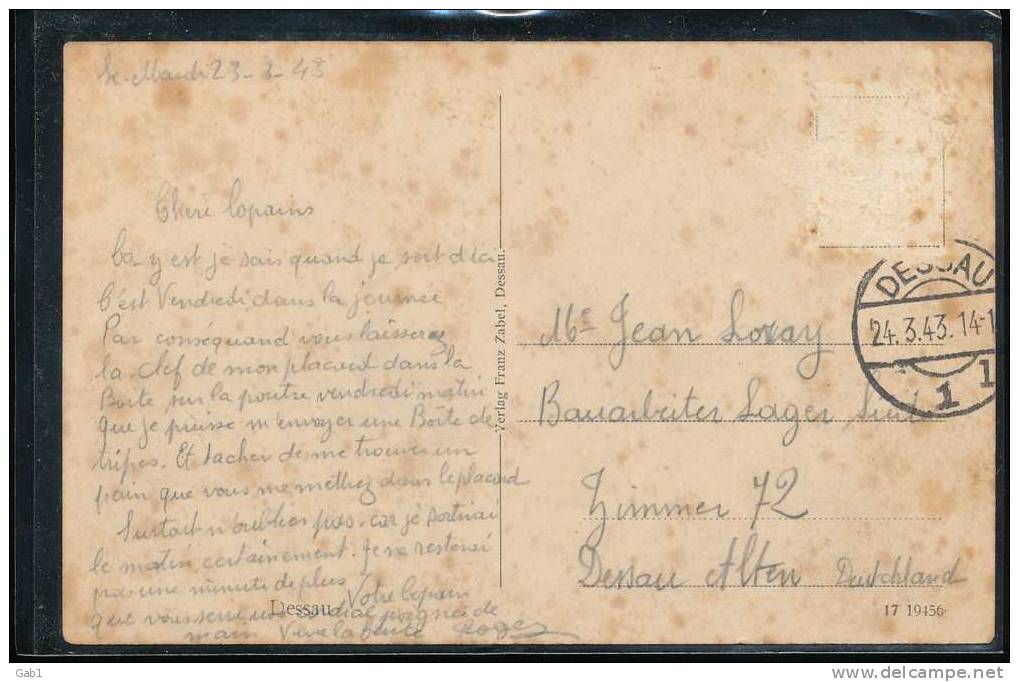 Le Mardi 23-3-43
Cheri Copains
Ca y est je sais quand je sort d'ici
C'est Vendredi dans la journée
Par conséquand vous laisserez
la clef de mon placard dans la
Boite sur la poutre vendredi matin
que je puisse m'envoyer une Boîte de
tripes. Et tacher de me trouver un
pain que vous me mettrez dans le placard
Surtout n'oublier pas. car je sortirai
le matin certainement. Je ne resterai
pas une minute de plus
Votre Copain
que vous serre une cordial poignée de
main Vive la Roger
Verlag Franz Zabel, Dessau.
Dessau
17 19456
DESSAU
24.3.43.14-1
1 1
Mr Jean Loray
Bauarbeiter Lager Süd
Zimmer 72
Dessau Alten Deutschland
Gab1
www.delcampe.net